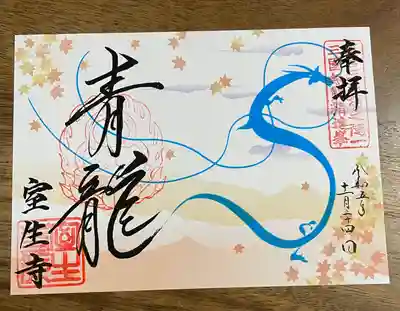 奉拝
令和五年
十一月二十四日
青龍
室生寺